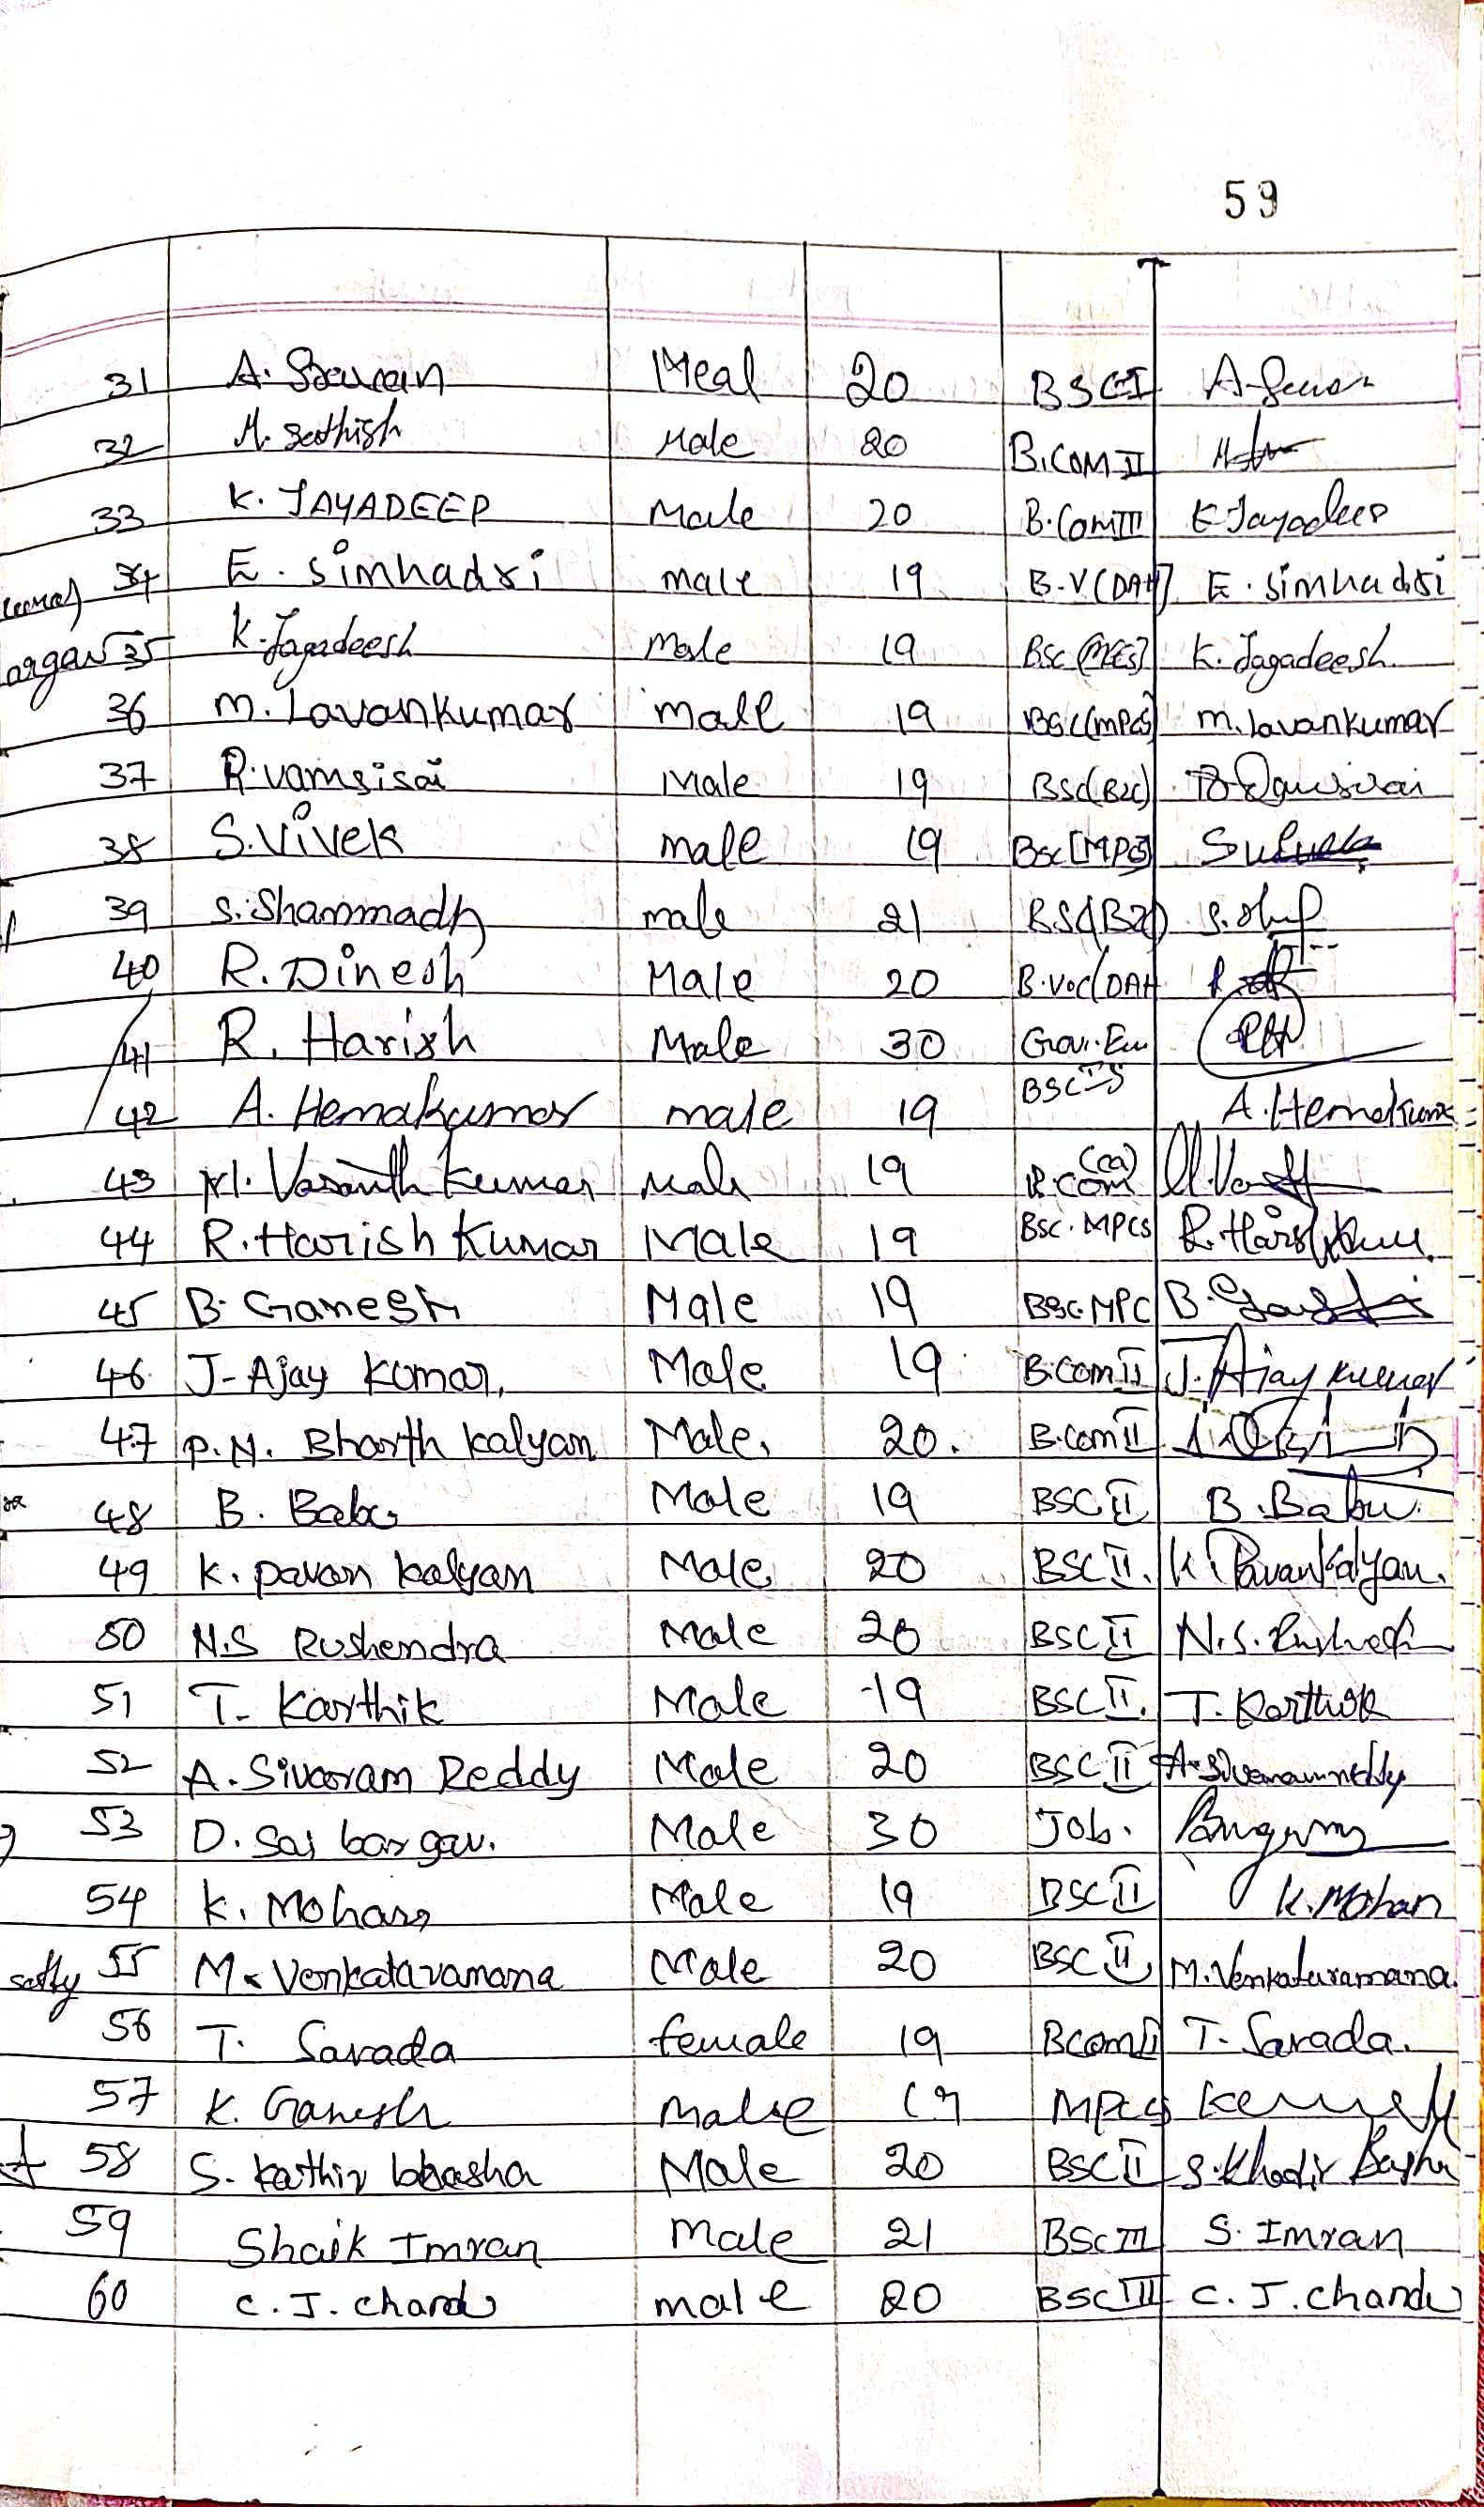 59
31 A. Meal 20 BSC I A.
32 M. Sathish Male 20 B.COM II
33 K. JAYADEEP Male 20 B.Com III K Jayadeep
34 E. Simhadri male 19 B.V(DAH) E. Simhadri
35 K. Jagadeesh Male 19 BSC K. Jagadeesh
36 M. Lavankumar male 19 BSC(MPCS) m. lavankumar
37 R. vamsisai Male 19 BSC(BZC)
38 S. Vivek male 19 BSC[MPCS]
39 S. Shanmadh male 21 BSC(BZC) S.
40 R. Dinesh Male 20 B.Voc(DAH
41 R. Harish Male 30 Gov. Em
42 A. Hemakumar male 19 BSC A. Hemakumar
43 M. Vasanth Kumar Male 19 B.Com (ca)
44 R. Harish Kumar Male 19 BSC. MPCS R. Harish
45 B. Ganesh Male 19 BSC. MPC B.
46 J. Ajay Komar, Male 19 B.Com II J. Ajay Kumar
47 P.N. Bharth kalyan Male, 20. B.Com II
48 B. Babu Male 19 BSC II B. Babu.
49 K. pavan kalyan Male 20 BSC II. K. Pavankalyan.
50 N.S Rushendra Male 20 BSC II N.S.
51 T. Karthik Male 19 BSC II. T. Karthik
52 A. Sivaram Reddy Male 20 BSC II A. Sivaramreddy
53 D. Sai bargav. Male 30 Job.
54 K. Mohan Male 19 BSC II K. Mohan
setty 55 M. Venkataramana Male 20 BSC II M. Venkataramana.
56 T. Sarada female 19 BCom II T. Sarada.
57 K. Ganesh Male 19 MPCS
58 S. kathir bhasha Male 20 BSC II S. Khadir Basha
59 Shaik Imran Male 21 BSC III S. Imran
60 C. J. chandu male 20 BSC III C. J. chandu